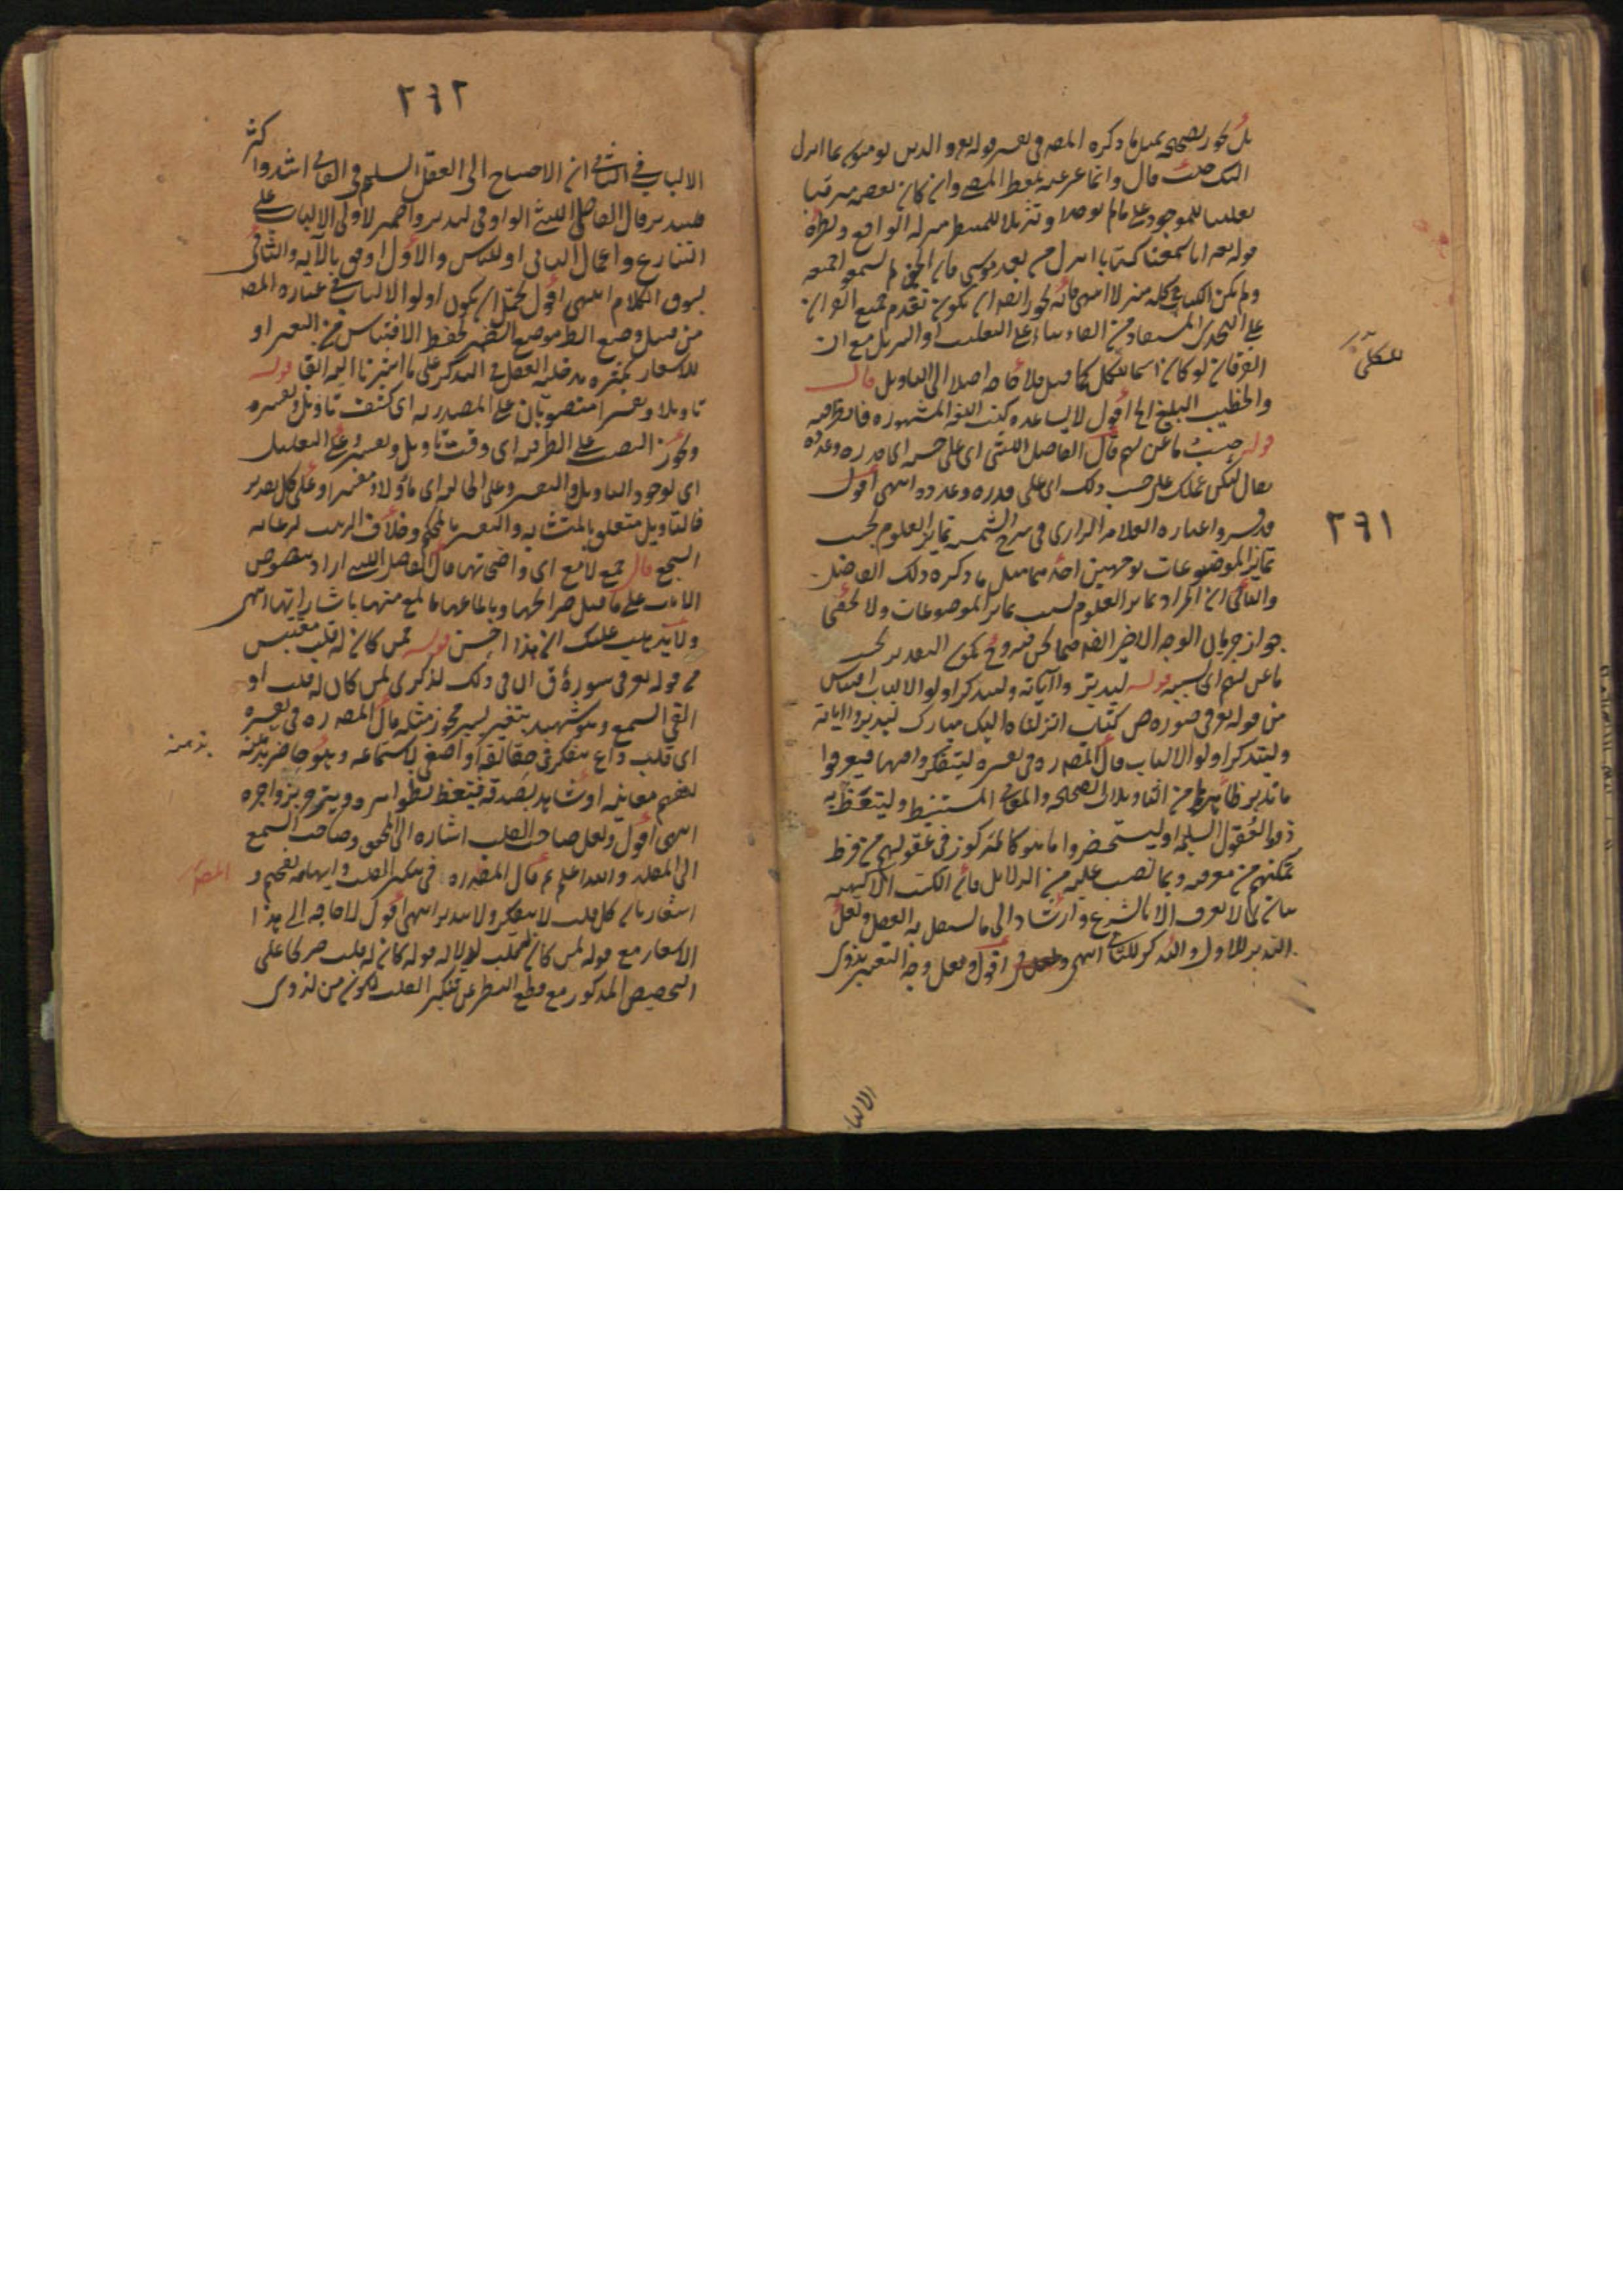 بل يجوز تصحيحه بمثل ما ذكره المص في تفسير قوله تع والذين يؤمنون بما انزل
اليك حيث قال وانما عبر عنه بلفظ المضي وان كان بعضه مترقبا
تغليبا للموجود على ما لم يوجد او تنزيلا للمنتظر منزلة الواقع ونظيره
قوله تع انا سمعنا كتابا انزل من بعد موسى فان الجن لم يسمعوا جميعه
ولم يكن الكتاب كله منزلا انتهى فانه يجوز ايضا ان يكون تقدم جميع القران
على التحدي المستفاد من الفاء بناء على التغليب او التنزيل مع ان
الفرقان لو كان اسما للكل كما قيل فلا حاجة اصلا الى التاويل قال
والخطيب البليغ الخ اقول لا يساعده كتب اللغة المشهورة
قوله حسب ما عن لهم قال الفاضل الليثي اى على حسبه اى قدره وعدده
يقال ليكن عملك على حسب ذلك اى على قدره وعدده انتهى اقول
قد فسروا عبارة العلامة الرازي في شرح الشمسية تمايز العلوم بحسب
تمايز الموضوعات بوجهين احدهما مثل ما ذكره ذلك الفاضل
والثاني ان افراد تمايز العلوم بسبب تمايز الموضوعات ولا يخفى
جواز جريان الوجه الاخير ايضا فيما نحن فيه وح يكون التقدير بحسب
ما عن لهم اى بسببه قوله ليدبروا آياته وليتذكر اولوا الالباب اقتباس
من قوله تع في سورة ص كتاب انزلناه اليك مبارك ليدبروا آياته
وليتذكر اولوا الالباب قال المص ره في تفسيره ليتفكروا فيها فيعرفوا
ما يدبر ظاهرها من التاويلات الصحيحة والمعاني المستنبطة وليتعظ به
ذووا العقول السليمة او ليستحضروا ما هو كالمركوز في عقولهم من فرط
تمكنهم من معرفته بما نصب عليه من الدلائل فان الكتب الالهية
بيان لما لا يعرف الا بالشرع وارشاد الى ما يستقل به العقل ولعل
التدبر للاول والتذكر للثاني انتهى اقول ولعل وجه التعبير بذوى
للكلي
٢٦١
الالبا
٢٦٢
الالباب في الثاني ان الاحتياج الى العقل السليم في الثاني اشد واكثر
فليتدبر قال الفاضل الليثي الواو في ليدبروا ضمير لاولى الالباب على
التنازع واعمال الثاني او للناس والاول اوفق بالآية والثاني
بسوق الكلام انتهى اقول يحتمل ان يكون اولوا الالباب في عبارة المص
من قبيل وضع الظ موضع الضمير لحفظ الاقتباس من التغيير او
للاشعار بمدخلية العقل في التذكر على ما اشرنا اليه آنفا قوله
تاويلا وتفسيرا منصوبان على المصدرية اى كشف تاويل وتفسير
ويجوز النصب على الظرفية اى وقت تاويل وتفسير وعلى التعليل
اى لوجود التاويل والتفسير وعلى الحالية اى ماؤلا ومفسرا وعلى كل تقدير
فالتاويل متعلق بالمتشابه والتفسير بالمحكم وخلاف الترتيب لرعاية
السجع قال جمع لامع اى واضحاتها قال الفاضل الليثي اراد بنصوص
الآيات على ما قيل صرائحها وبالماعها ما يلمع منها باشاراتها انتهى
ولا يذهب عليك ان هذا احسن قوله فمن كان له قلب مقتبس
من قوله تع في سورة ق ان في ذلك لذكرى لمن كان له قلب او
القى السمع وهو شهيد بتغيير يسير يجوز مثله قال المص ره في تفسيره
اى قلب واع يتفكر في حقائقه او اصغى لاستماعه وهو حاضر بذهنه
ليفهم معانيه او شاهد بصدقه فيتعظ بظواهره وينزجر بزواجره
انتهى اقول ولعل صاحب القلب اشارة الى المحقق وصاحب السمع
الى المقلد والله اعلم ثم قال المص ره في تنكير القلب وابهامه تفخيم و
اشعار بان كل قلب لا يتفكر ولا يتدبر انتهى اقول لا حاجة الى هذا
الاشعار مع قوله لمن كان له قلب لدلالة قوله كان له قلب صريحا على
التخصيص المذكور مع قطع النظر عن تنكير القلب لكونه من لذوى
بذهنه
المص